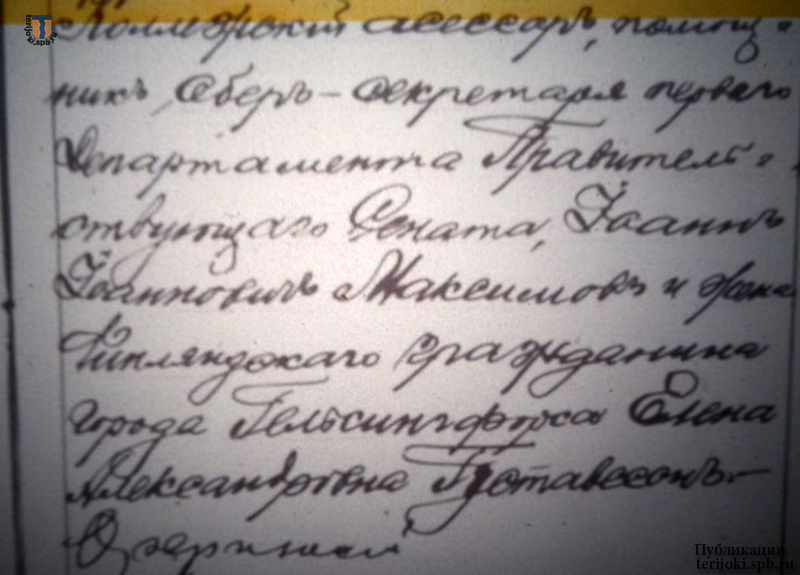 Коллежскій асессоръ, помощ=
никъ Оберъ-секретаря перваго
Департамента Правитель=
ствующаго Сената, Іоаннъ
Іоанновичъ Максимовъ и жена
Финляндскаго гражданина
города Гельсингфорса Елена
Александровна Густавссонъ.—
terijoki.spb.ru
Публикация
terijoki.spb.ru